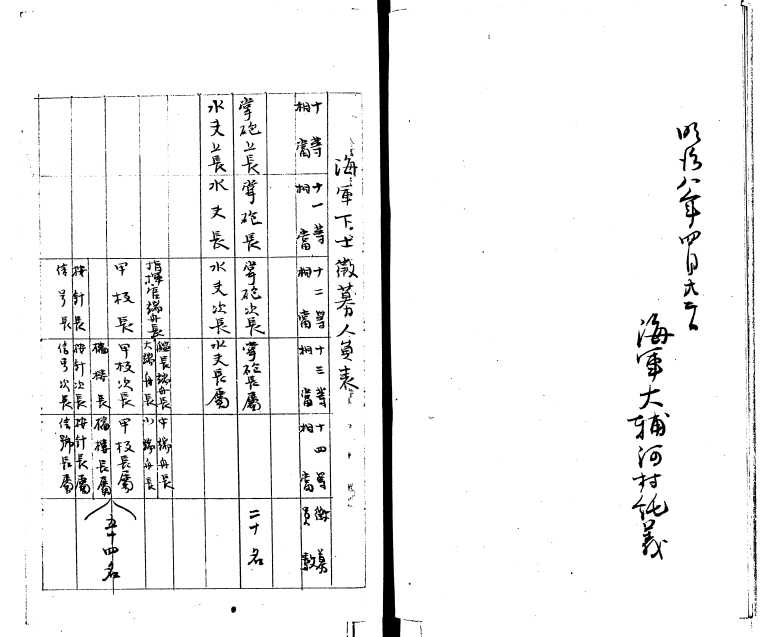 明治八年四月
海軍大輔河村純義
海軍下士徴募人員表
十等相當
十一等相當
十二等相當
十三等相當
十四等相當
徴募員數
掌砲上長
掌砲長
掌砲次長
掌砲長屬
二十名
水夫上長
水夫長
水夫次長
水夫長屬
指揮官端舟長
艦長端舟長
大端舟長
中端舟長
小端舟長
甲板長
甲板次長
甲板長屬
檣樓長
檣樓長屬
按針長
按針次長
按針長屬
信号長
信号次長
信號長屬
五十四名